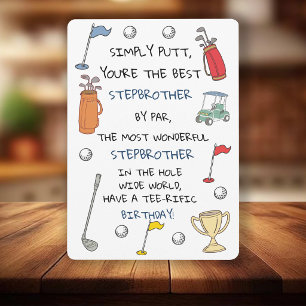 SIMPLY PUTT,
YOURE THE BEST
STEPBROTHER
BY PAR,
THE MOST WONDERFUL
STEPBROTHER
IN THE HOLE
WIDE WORLD,
HAVE A TEE-RIFIC
BIRTHDAY!